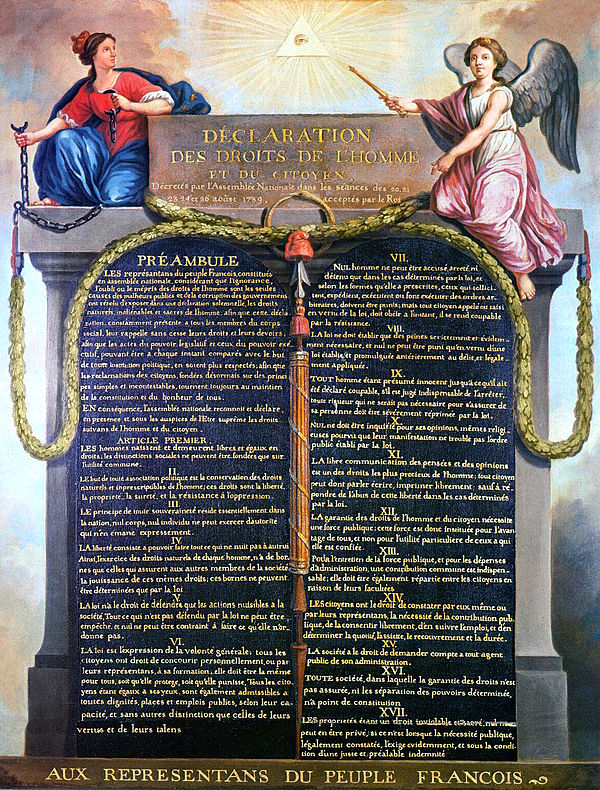 DÉCLARATION
DES DROITS DE L'HOMME
ET DU CITOYEN,
Décretés par l'Assemblée Nationale dans les séances des 20, 21
23, 24 et 26 aoûst 1789, acceptés par le Roi
PRÉAMBULE
LES représantans du peuple Francois, constitués
en assemblée nationale, considérant que l'ignorance,
l'oubli ou le mépris des droits de l'homme sont les seules
causes des malheurs publics et de la corruption des gouvernemens
ont résolu d'exposer dans une déclaration solemnelle, les droits
naturels, inaliénables et sacrés de l'homme; afin que cette décla
ration, constamment présente a tous les membres du corps
social, leur rappelle sans cesse leurs droits et leurs devoirs,
afin que les actes du pouvoir législatif et ceux du pouvoir exé
cutif, pouvant être a chaque instant comparés avec le but
de toute institution politique, en soient plus respectés; afin que
les reclamations des citoyens, fondées désormais sur des princi
pes simples et incontestables, tournent toujours au maintien
de la constitution et du bonheur de tous.
EN conséquence, l'assemblée nationale reconnoit et déclare,
en presence et sous les auspices de l'Etre suprême les droits
suivans de l'homme et du citoyen.
ARTICLE PREMIER.
LES hommes naissent et demeurent libres et égaux en
droits; les distinctions sociales ne peuvent être fondées que sur
l'utilité commune.
II.
LE but de toute association politique est la conservation des droits
naturels et inprescriptibles de l'homme; ces droits sont la liberté,
la propriété, la sureté, et la résistance à l'oppression.
III.
LE principe de toute souveraineté réside essentiellement dans
la nation, nul corps, nul individu ne peut exercer d'autorité
qui n'en émane expressement.
IV.
LA liberté consiste a pouvoir faire tout ce qui ne nuit pas à autrui
Ainsi, l'exercice des droits naturels de chaque homme, n'a de bor
nes que celles qui assurent aux autres membres de la société
la jouissance de ces mêmes droits; ces bornes ne peuvent
être déterminées que par la loi
V.
LA loi n'a le droit de défendre que les actions nuisibles a la
société, Tout ce qui n'est pas défendu par la loi ne peut être
empêché, et nul ne peut être contraint à faire ce qu'elle n'or
donne pas.
VI.
LA loi est l'expression de la volonté générale; tous les
citoyens ont droit de concourir personnellement, ou par
leurs représentans, à sa formation; elle doit être la même
pour tous, soit qu'elle protege, soit qu'elle punisse, Tous les cito
yens étans égaux à ses yeux, sont également admissibles a
toutes dignités, places et emplois publics, selon leur ca
pacité, et sans autres distinction que celles de leurs
vertus et de leurs talens
VII.
NUL homme ne peut être accusé, arreté ni
détenu que dans les cas déterminés par la loi, et
selon les formes qu'elle a prescrites, ceux qui sollici
tent, expédient, exécutent ou font exécuter des ordres ar
bitraires, doivent être punis; mais tout citoyen appelé ou saisi
en vertu de la loi, doit obéir a l'instant, il se rend coupable
par la résistance.
VIII.
LA loi ne doit établir que des peines strictement et évidem
ment nécessaire, et nul ne peut être puni qu'en vertu d'une
loi établie, et promulguée antérierement au délit, et légale
ment appliquée.
IX.
TOUT homme étant présumé innocent jusqu'a ce qu'il ait
été déclaré coupable, s'il est jugé indispensable de l'arrêter,
toute rigueur qui ne serait pas nécessaire pour s'assurer de
sa personne doit être sévèrement réprimée par la loi.
X.
NUL ne doit être inquiété pour ses opinions, mêmes religi
euses pourvu que leur manifestation ne trouble pas l'ordre
public établi par la loi.
XI.
LA libre communication des pensées et des opinions
est un des droits les plus precieux de l'homme; tout citoyen
peut dont parler écrire, imprimer librement; sauf à ré
pondre de l'abus de cette liberté dans les cas déterminés
par la loi.
XII.
LA garantie des droits de l'homme et du citoyen nécessite
une force publique; cette force est donc instituée pour l'avan
tage de tous, et non pour l'utilité particuliere de ceux a qui
elle est confiée.
XIII.
Pour l'entretien de la force publique, et pour les dépenses
d'administration, une contribution commune est indispen-
sable; elle doit être également répartie entre les citoyens en
raison de leurs facultées.
XIV.
LES citoyens ont le droit de constater par eux même ou
par leurs représentans, la nécessité de la contribution pub
lique, de la consentir librement, d'en suivre l'emploi, et d'en
déterminer la quotité, l'assiette, le recouvrement et la durée.
XV.
LA société a le droit de demander compte a tout agent
public de son administration.
XVI.
TOUTE société, dans laquelle la garantie des droits n'est
pas assurée, ni les séparation des pouvoirs déterminée,
n'a point de constitution
XVII.
LES proprietés étant un droit inviolable et sacré, nul ne
peut en être privé, si ce n'est lorsque la nécessité publique,
légalement constatée, l'exige evidemment, et sous la condi
tion d'une juste et préalable indemnité
AUX REPRESENTANS DU PEUPLE FRANCOIS